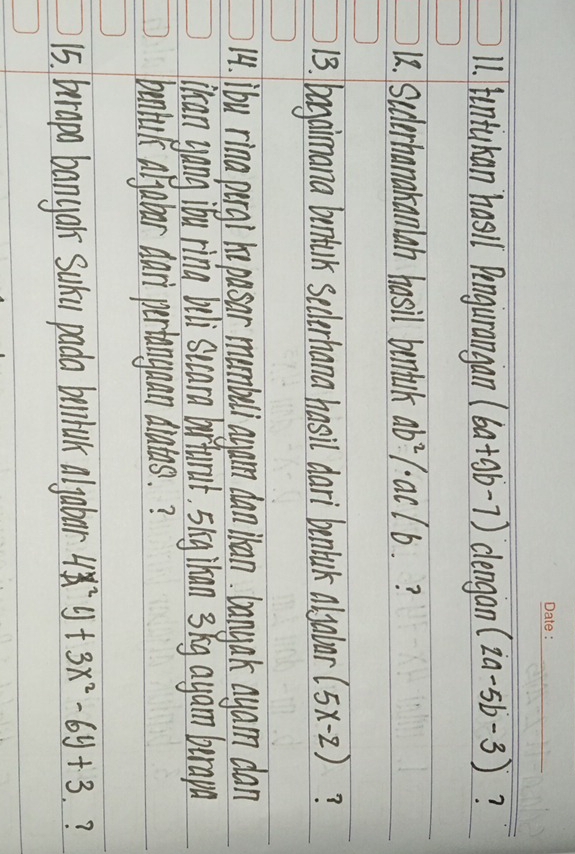 Date :
11. tentukan hasil Pengurangan (6a+9b-7) dengan (2a-5b-3) ?
12. Sederhanakanlah hasil bentuk ab²/.ac/b. ?
13. bagaimana bentuk sederhana hasil dari bentuk aljabar (5x-2) ?
14. ibu rina pergi ke pasar membeli ayam dan ikan. banyak ayam dan
ikan yang ibu rina beli secara berturut, 5kg ikan 3kg ayam berapa
bentuk aljabar dari pertanyaan diatas. ?
15. berapa banyak suku pada bentuk aljabar 4x²y + 3x² - 6y + 3. ?